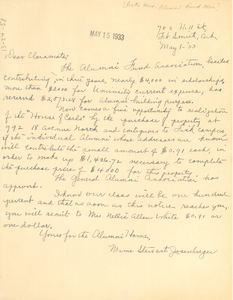 704 N. 11 St.
Ft Smith, Ark.
MAY 15 1933
May 1, '33
Dear Classmate:
The Alumni Fund Association, besides
contributing in this years, nearly $4,000 in scholarships,
more than $2000 for University current expenses, has
reserved $2,573.58 for Alumni building purpose.
Now comes a fine opportunity to
of the "House of Carls" by the purchase of property at
792 W. Avenue North and contiguous to the campus
of individual Alumnae whose addresses are known
will contribute the small amount of $0.91 each, in
order to make up $1,426.72 necessary to complete
the purchase price of $4000 for this property.
The General Alumni Association has
approved.
I know our class will be one hundred
percent and that as soon as this notice reaches you,
you will remit to Mrs Nellie Allen White $0.91 or
one dollar.
Yours for the Alumni House,
Mame Stewart Josenberger